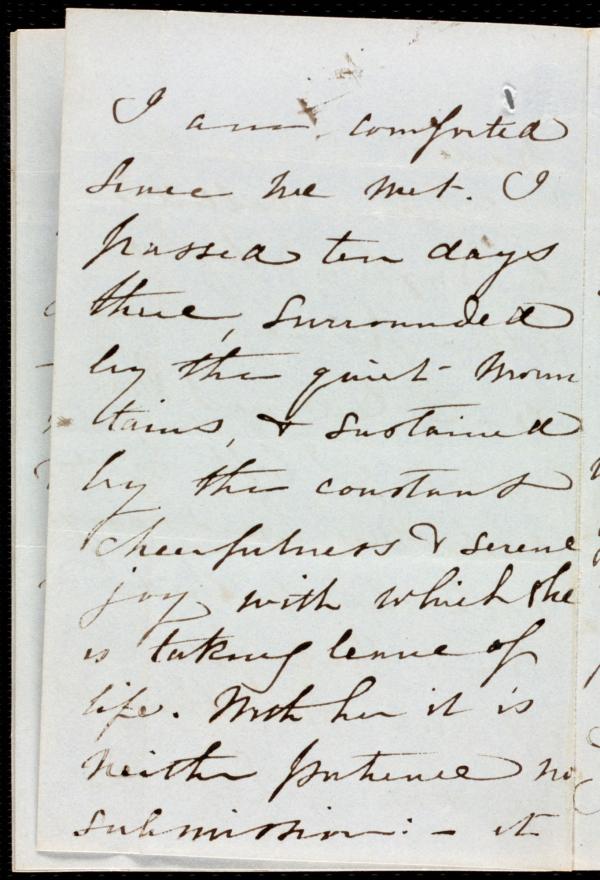 I am comforted
since we met. I
passed ten days
there, surrounded
by the quiet moun
tains, & sustained
by the constant
cheerfulness & serene
joy with which she
is taking leave of
life. With her it is
neither patience no
submission: - it